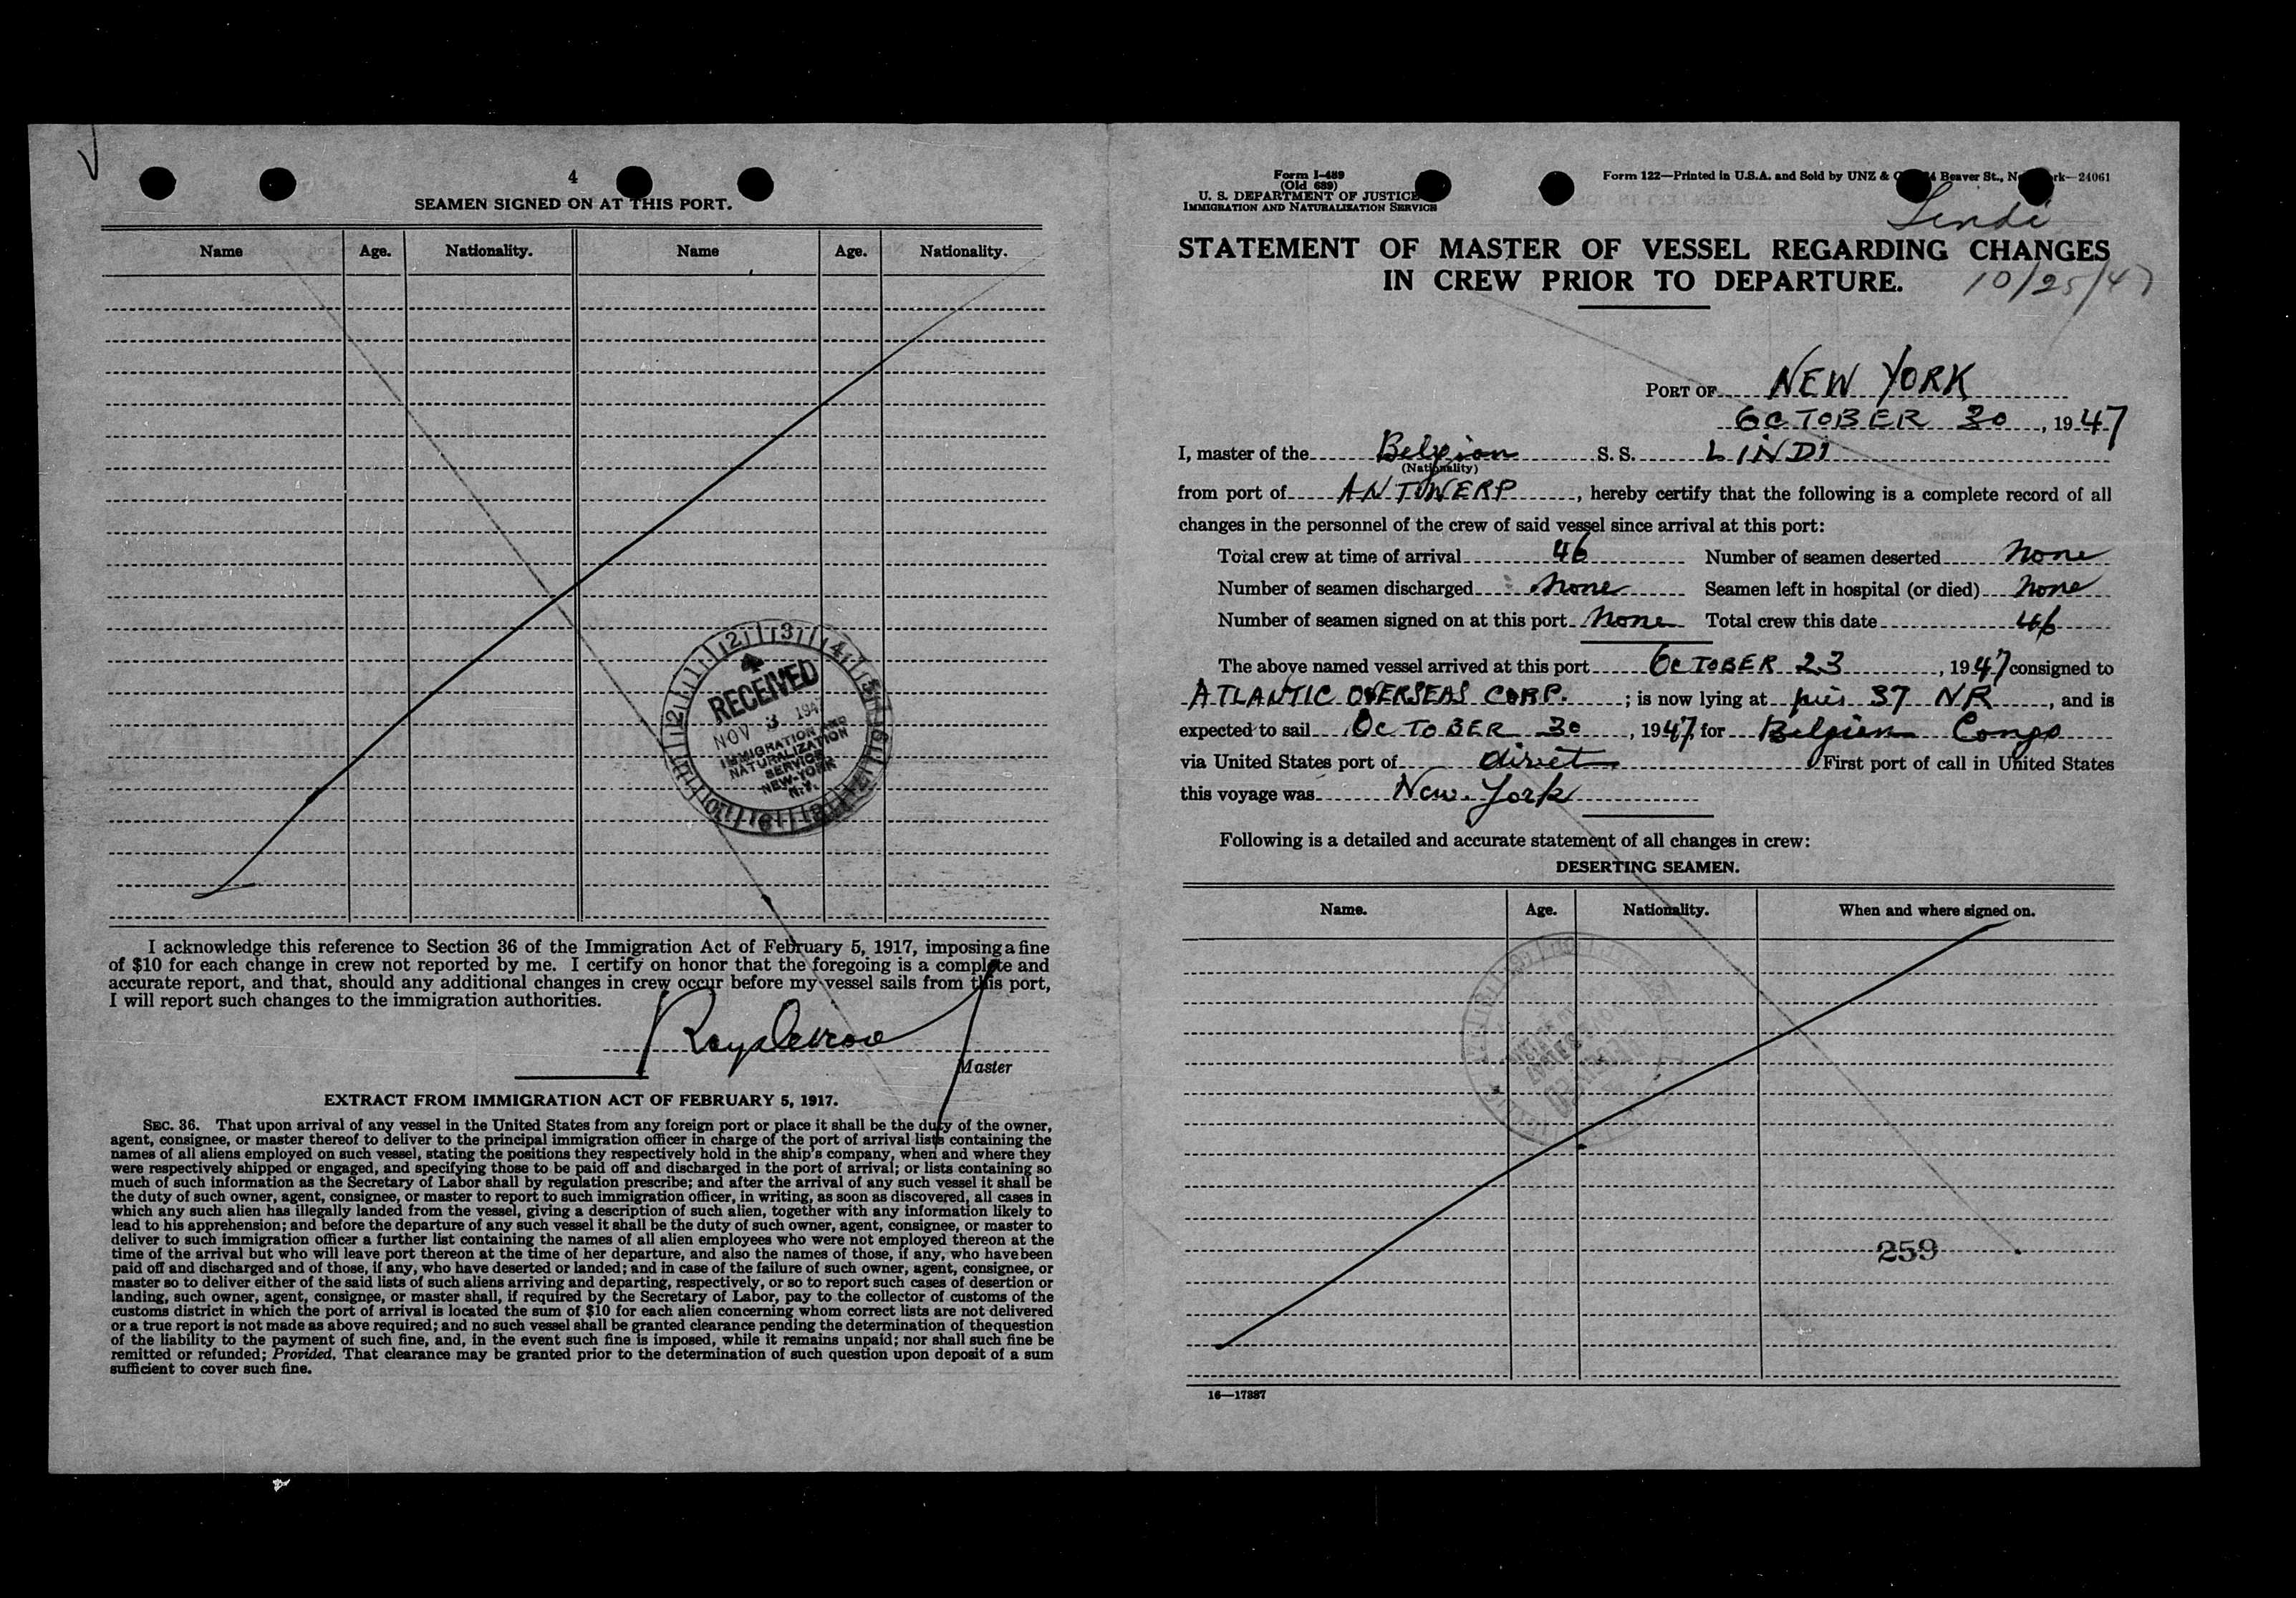 4
SEAMEN SIGNED ON AT THIS PORT.
Name Age. Nationality. Name Age. Nationality.
RECEIVED
NOV 3 194
IMMIGRATION AND
NATURALIZATION
SERVICE
NEW-YORK
N.Y.
I acknowledge this reference to Section 36 of the Immigration Act of February 5, 1917, imposing a fine
of $10 for each change in crew not reported by me. I certify on honor that the foregoing is a complete and
accurate report, and that, should any additional changes in crew occur before my vessel sails from this port,
I will report such changes to the immigration authorities.
Master
EXTRACT FROM IMMIGRATION ACT OF FEBRUARY 5, 1917.
SEC. 36. That upon arrival of any vessel in the United States from any foreign port or place it shall be the duty of the owner,
agent, consignee, or master thereof to deliver to the principal immigration officer in charge of the port of arrival lists containing the
names of all aliens employed on such vessel, stating the positions they respectively hold in the ship's company, when and where they
were respectively shipped or engaged, and specifying those to be paid off and discharged in the port of arrival; or lists containing so
much of such information as the Secretary of Labor shall by regulation prescribe; and after the arrival of any such vessel it shall be
the duty of such owner, agent, consignee, or master to report to such immigration officer, in writing, as soon as discovered, all cases in
which any such alien has illegally landed from the vessel, giving a description of such alien, together with any information likely to
lead to his apprehension; and before the departure of any such vessel it shall be the duty of such owner, agent, consignee, or master to
deliver to such immigration officer a further list containing the names of all alien employees who were not employed thereon at the
time of the arrival but who will leave port thereon at the time of her departure, and also the names of those, if any, who have been
paid off and discharged and of those, if any, who have deserted or landed; and in case of the failure of such owner, agent, consignee, or
master so to deliver either of the said lists of such aliens arriving and departing, respectively, or so to report such cases of desertion or
landing, such owner, agent, consignee, or master shall, if required by the Secretary of Labor, pay to the collector of customs of the
customs district in which the port of arrival is located the sum of $10 for each alien concerning whom correct lists are not delivered
or a true report is not made as above required; and no such vessel shall be granted clearance pending the determination of the question
of the liability to the payment of such fine, and, in the event such fine is imposed, while it remains unpaid; nor shall such fine be
remitted or refunded; Provided, That clearance may be granted prior to the determination of such question upon deposit of a sum
sufficient to cover such fine.
Form I-489
(Old 689)
U. S. DEPARTMENT OF JUSTICE
IMMIGRATION AND NATURALIZATION SERVICE
Form 122—Printed in U.S.A. and Sold by UNZ & Beaver St., 24061
Lindi
STATEMENT OF MASTER OF VESSEL REGARDING CHANGES
IN CREW PRIOR TO DEPARTURE.
10/25/47
PORT OF NEW YORK
OCTOBER 30, 1947
I, master of the Belgian S. S. LINDI
(Nationality)
from port of ANTWERP, hereby certify that the following is a complete record of all
changes in the personnel of the crew of said vessel since arrival at this port:
Total crew at time of arrival 46 Number of seamen deserted none
Number of seamen discharged none Seamen left in hospital (or died) none
Number of seamen signed on at this port none Total crew this date 46
The above named vessel arrived at this port OCTOBER 23, 1947 consigned to
ATLANTIC OVERSEAS CORP.; is now lying at 37 NR, and is
expected to sail OCTOBER 30, 1947, for Belgian Congo
via United States port of direct First port of call in United States
this voyage was New York
Following is a detailed and accurate statement of all changes in crew:
DESERTING SEAMEN.
Name. Age. Nationality. When and where signed on.
259
16—17887